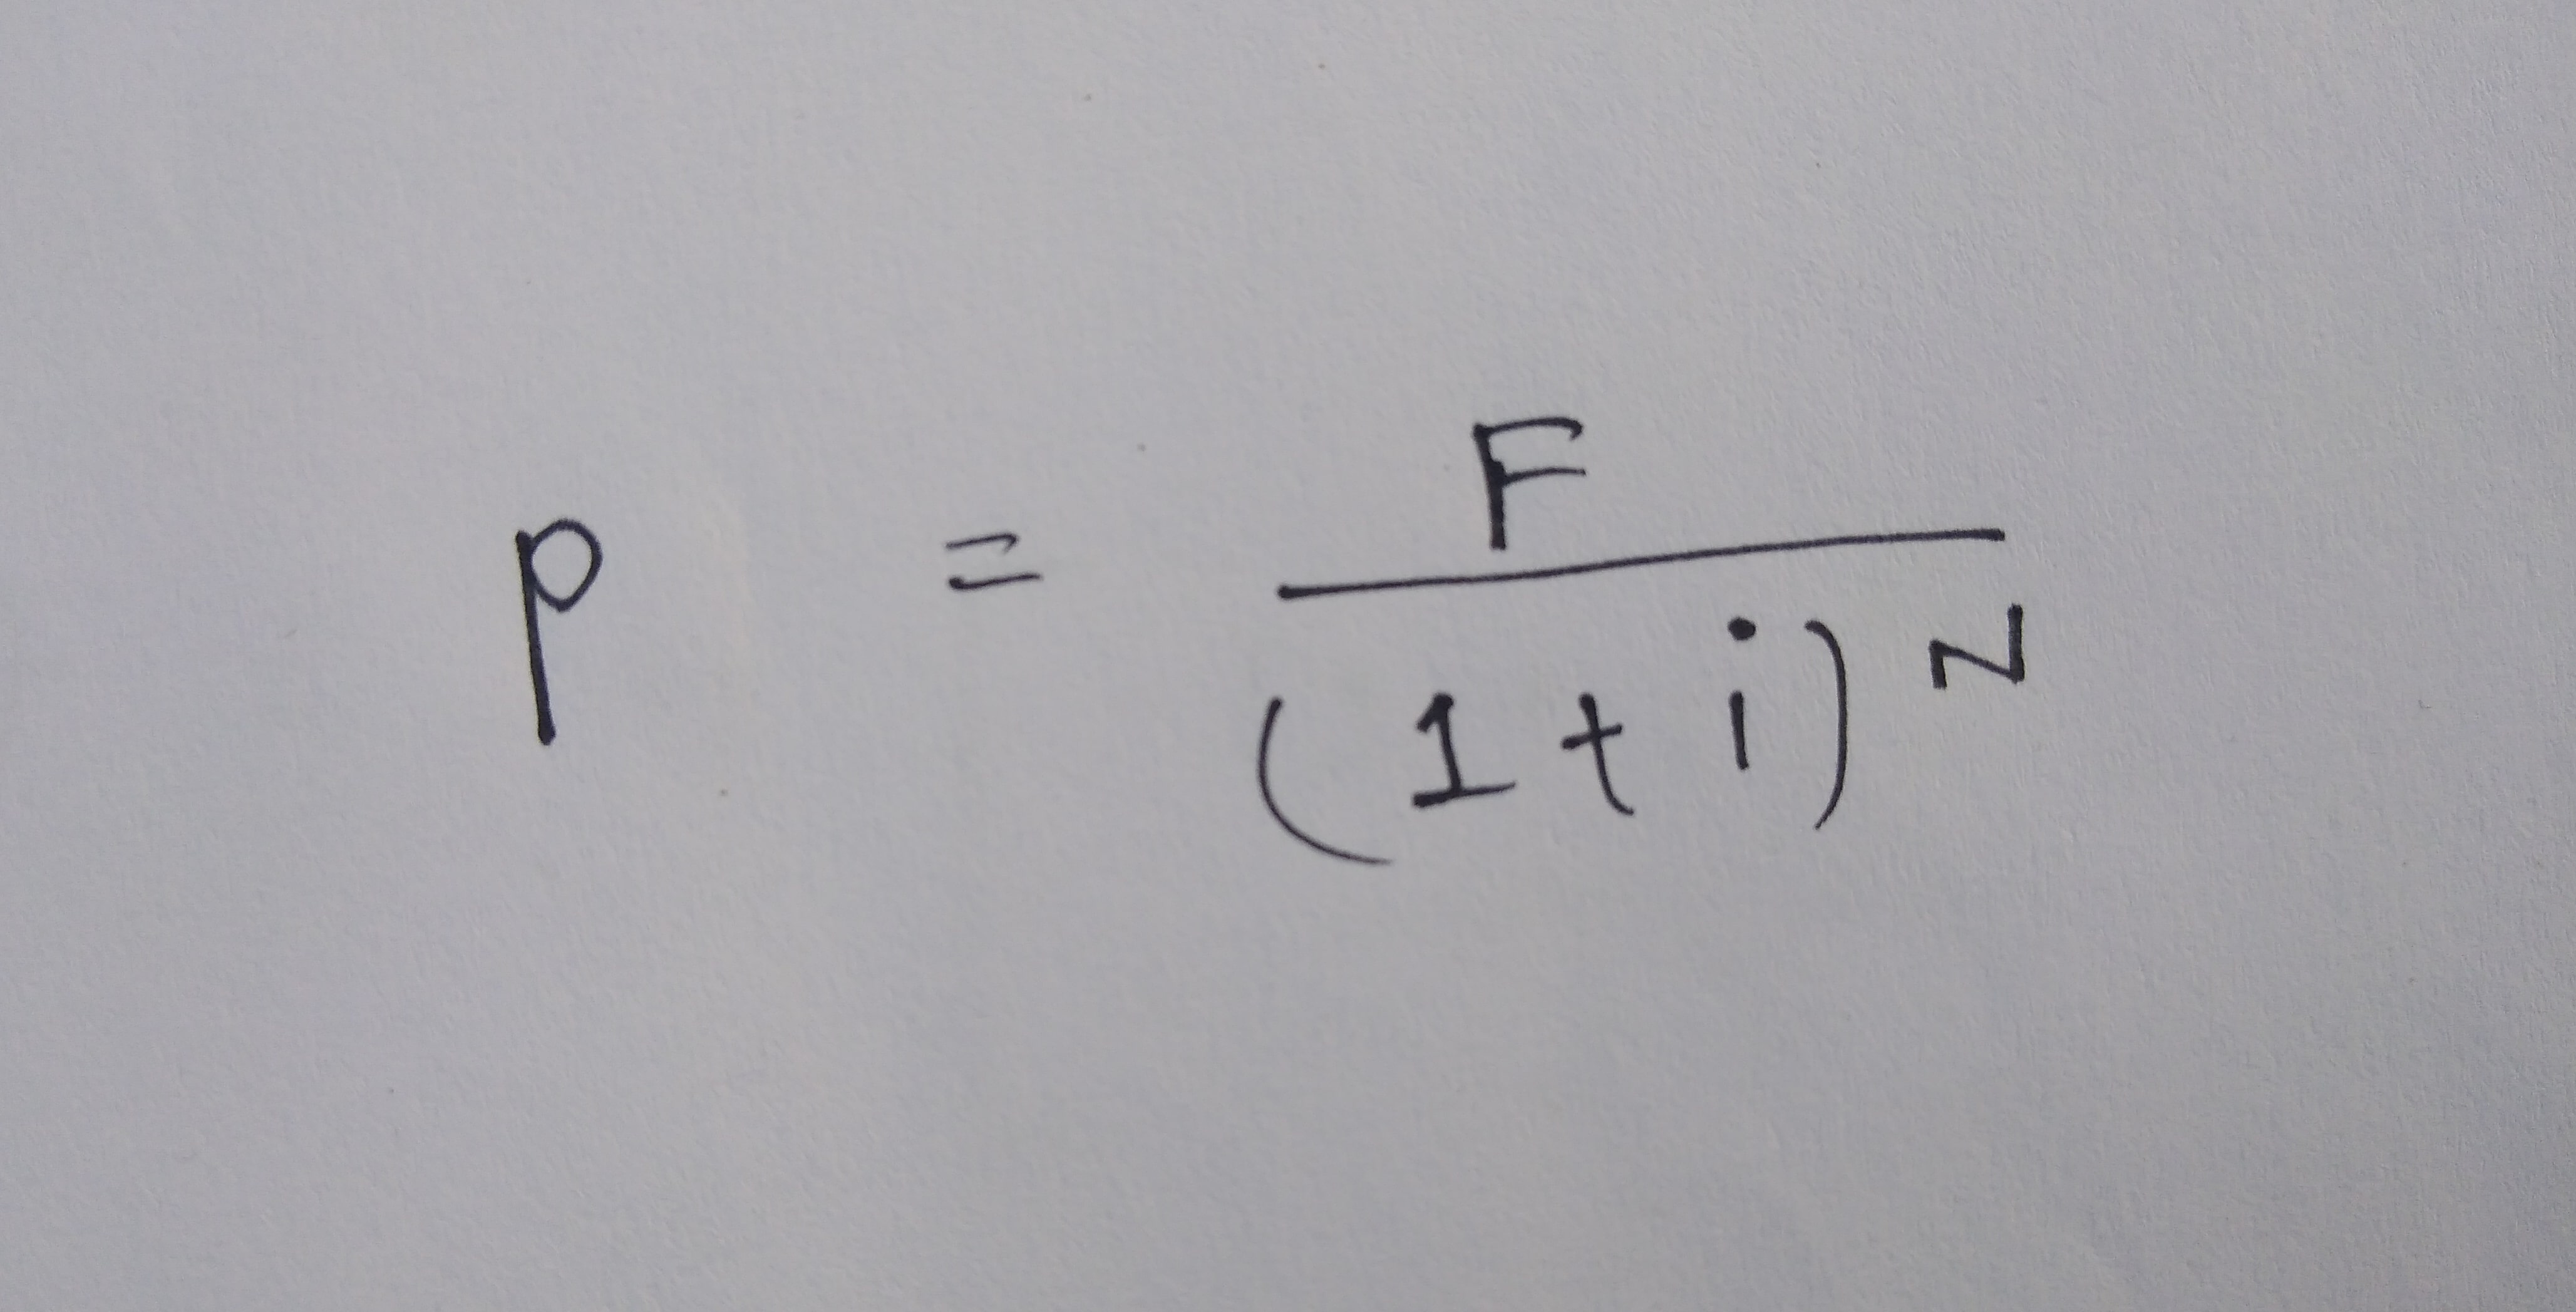 P = F / (1 + i)^N